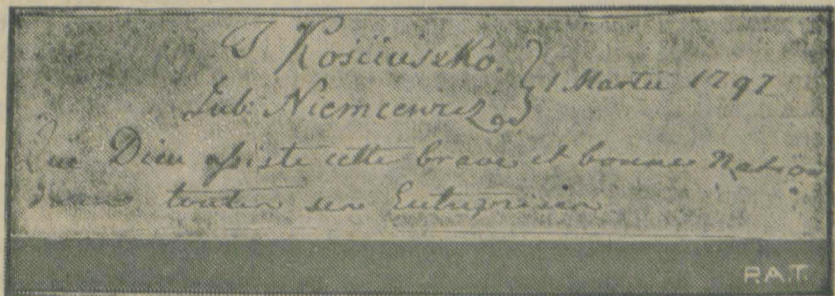 T Kosciuszko.
Jul: Niemcewicz } 1 Martii 1797
Que Dieu assiste cette brave et bonne Nation
dans toutes ses Entreprises
P.A.T.